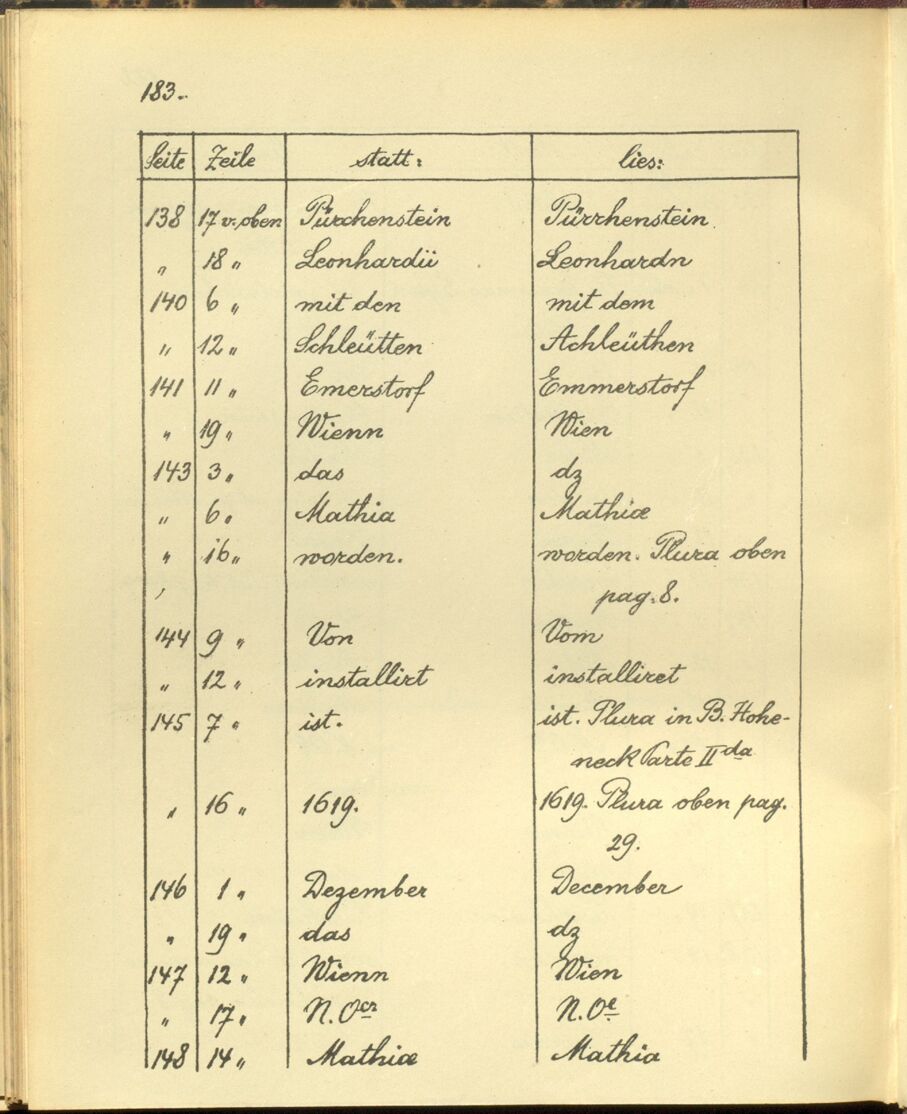 183.
Seite Zeile statt: lies:
138 17 v. oben Pürchenstein Pürrhenstein
„ 18 „ Leonhardii Leonhardn
140 6 „ mit den mit dem
„ 12 „ Schleütten Achleüthen
141 11 „ Emerstorf Emmerstorf
„ 19 „ Wienn Wien
143 3 „ das dz
„ 6 „ Mathia Mathiæ
„ 16 „ worden. worden. Plura oben
pag. 8.
144 9 „ Von Vom
„ 12 „ installirt installiret
145 7 „ ist. ist. Plura in B. Hohe-
neck Parte II da
„ 16 „ 1619. 1619. Plura oben pag.
29.
146 1 „ Dezember December
„ 19 „ das dz
147 12 „ Wienn Wien
„ 17 „ N. Oer N. Oe
148 14 „ Mathiæ Mathia